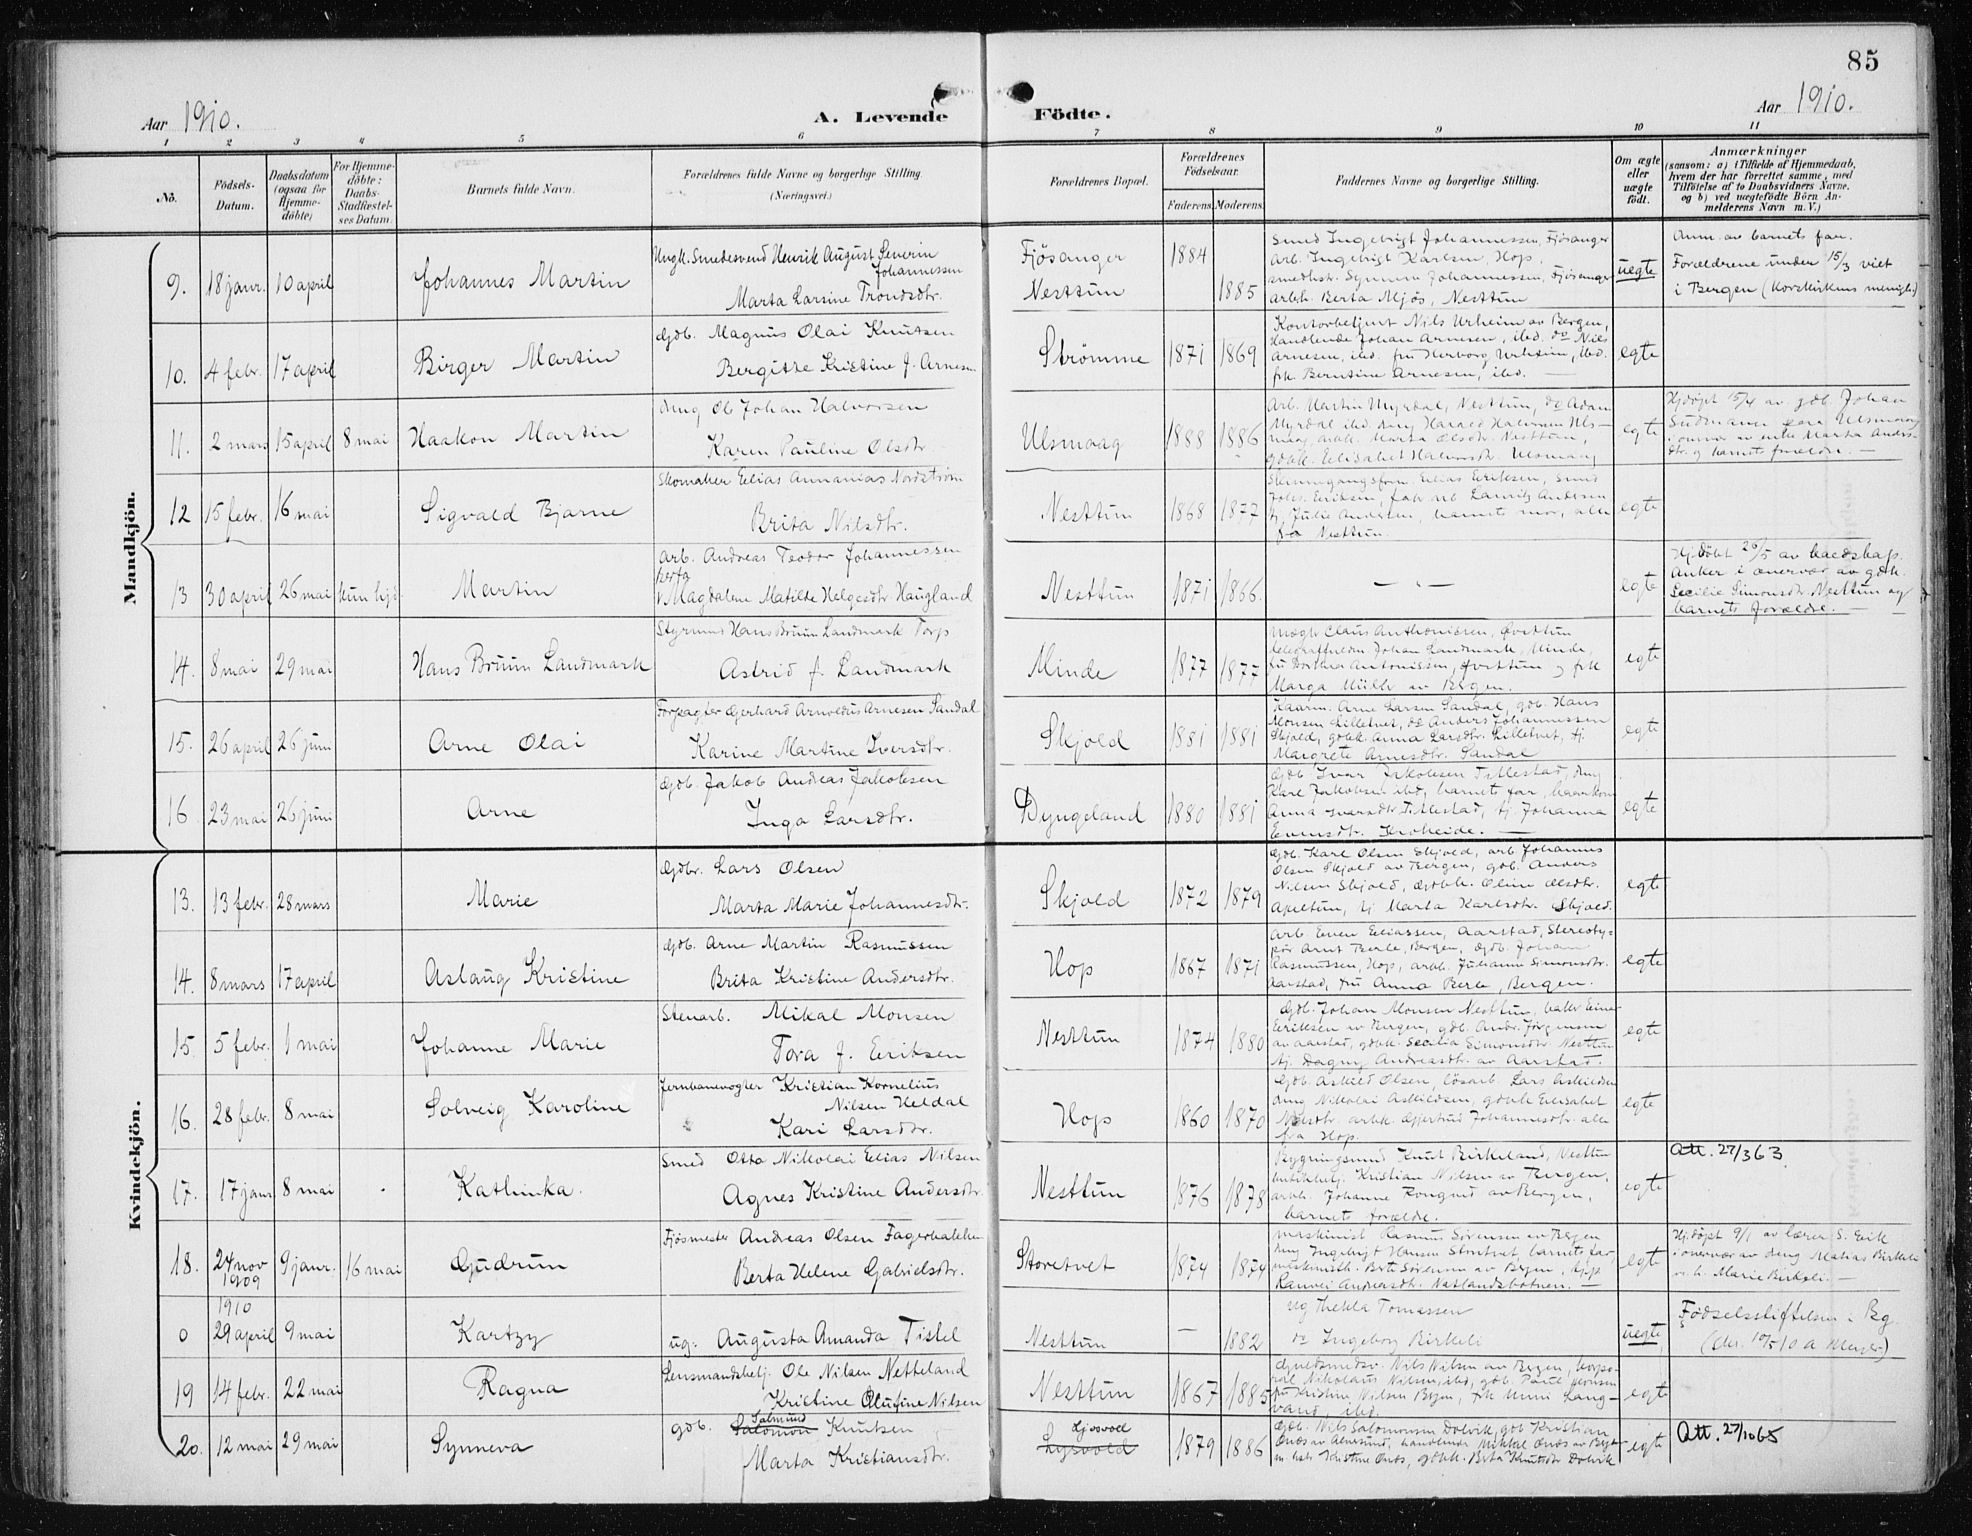 85
Aar 1910.
A. Levende Födte.
Aar 1910.
1 2 3 4 5 6 7 8 9 10 11
No.
Födsels-Datum.
Daabsdatum (ogsaa for Hjemme-döbte)
For Hjemme-döbte: Daabs-Stadfæstel-ses Datum.
Barnets fulde Navn.
Forældrenes fulde Navne og borgerlige Stilling. (Næringsvei.)
Forældrenes Bopæl.
Forældrenes Födselsaar.
Faderens. Moderens.
Faddernes Navne og borgerlige Stilling.
Om ægte eller uægte födt.
Anmærkninger
(saasom: a) i Tilfælde af Hjemmedaab,
hvem der har forrettet samme, med
Tilföielse af to Daabsvidners Navne.
og b) ved uægtefödte Börn An-
melderens Navn m.V.)
Mandkjön.
9. 18 janr. 10 april Johannes Martin
Ungk. Smedesvend Henrik August Severin Johannessen
Marta Larsine Trondsdtr.
Fjösanger 1884
Nesttun 1885
Smed Ingebrigt Johannessen, Fjösanger
arb. Ingebrigt Karlsen, Hop.
smedhstr. Synneva Johannessen, Fjösanger
arbk. Berta Mjös, Nesttun
uegte
Anm. av barnets far.
Forældrene under 15/3 viet
i Bergen (Korskirkens menigh.)
10. 4 febr. 17 april Birger Martin
Gdb. Magnus Olai Knutsen
Bergitte Kristine f. Arnesen
Strömme 1871 1869
Kontorbetjent Nils Urheim av Bergen,
Handlende Johan Arnesen, ibd. do Nils
Arnesen, ibd. fru Herborg Urheim, ibd.
frk. Berntine Arnesen, ibd.
egte
11. 2 mars 15 april 8 mai Haakon Martin
Ole Johan Halvorsen
Karen Pauline Olsdtr.
Ulsmaag 1888 1886
Arb. Martin Myrdal, Nesttun, do Adam
Myrdal ibd. Harald Halvorsen Uls-
maag, arbk. Marta Olsdtr. Nesttun,
gdbk. Elisabet Halvorsdtr. Ulsmaag
egte
Hjdöpt 15/4 av gdb. Johan
Ulsmaag
barnets forældre.
12 15 febr. 16 mai Sigvald Bjarne
Skomaker Elias Annanias Nordström
Brita Nilsdtr.
Nesttun 1868 1877
Elias Eriksen, Smed
Eriksen, Lauritz Andersen
Julie Andersen, barnets mor, alle
fra Nesttun.
egte
13 30 april 26 mai kun hjd. Martin
Arb. Andreas Teodor Johannessen
Berta
Magdalene Matilde Helgesdtr. Haugland
Nesttun 1871 1866.
— „ —
egte
Hjdöbt 26/5 av baedskap.
Anker i overvær av gdbk.
Secilie Simonsdtr. Nesttun og
barnets forældre.
14. 8 mai 29 mai Hans Bruun Landmark
Styrmand Hans Bruun Landmark Torp
Astrid f. Landmark
Minde 1877 1877
Claus Anthonissen, Övsttun
Johan Landmark, Minde,
fru Dorthea Antonissen, Övsttun og frk
Marga Müller av Bergen.
egte
15. 26 april 26 juni Arne Olai
Forpagter Gerhard Arnoldus Arnesen Sandal
Karine Martine Iversdtr.
Skjold 1881 1881
Kaarm. Arne Larsen Sandal, gdb. Hans
Monsen Lilletvet, do Anders Johannessen
Skjold, gdbk. Anna Larsdtr. Lilletvet, tj
Margrete Arnesdtr. Sandal
egte
16. 23 mai 26 juni Arne
Gdb. Jakob Andreas Jakobsen
Inga Larsdtr.
Dyngeland 1880 1881
Gdb Ivar Jakobsen Titlestad,
Karl Jakobsen ibd, barnets far,
Anna Ivarsdtr. Titlestad, tj. Johanna
Evensdtr. Kroheide.
egte
Kvindekjön.
13. 13 febr. 28 mars Marie
Gdbr. Lars Olsen
Marta Marie Johannesdtr.
Skjold 1872 1879
Gdb. Karl Olsen Skjold, arb. Johannes
Olsen Skjold av Bergen, gdb. Anders
Nilsen Skjold, gdbk. Oline Olsdtr.
Apeltun, tj Marta Karlsdtr. Skjold.
egte
14. 8 mars 17 april Aslaug Kristine
Gdb. Arne Martin Rasmussen
Brita Kristine Andersdtr.
Hop 1867 1871
Arb. Even Eliassen, Aarstad, Stereoty-
pör Arnt Berle, Bergen, Gdb. Johan
Rasmussen, Hop, arbk. Johanne Simonsdtr.
Aarstad, fru Anna Berle, Bergen.
egte
15. 5 febr. 1 mai Johanne Marie
Stenarb. Mikal Monsen
Tora f. Eriksen
Nesttun 1874 1880
Gdb. Johan Monsen Nesttun, Einar
Eriksen av Bergen, gdb. Andr. Jörgensen
av Aarstad, gdbk. Secilia Simonsdtr. Nesttun
tj. Dagny Andreasdtr. av Aarstad.
egte
16. 28 febr. 8 mai Solveig Karoline
Jernbanevogter Kristian Kornelius
Nilsen Heldal
Kari Larsdtr.
Hop 1860 1870
Gdb. Askild Olsen, lösarb. Lars Askildsen
Nikolai Askildsen, gdbk Elisabet
Nilsdtr. arbk. Gjertrud Johannesdtr. alle
fra Hop.
egte
17. 17 janr 8 mai Kathinka.
Smed Otto Nikolai Elias Nilsen
Agnes Kristine Andersdtr.
Nesttun 1876 1878
Bygningssmed Knut Birkeland, Nesttun
Kristian Nilsen av Bergen,
arbk. Johanne av Bergen,
barnets forældre.
egte
Att. 27/3 63.
18. 24 nov 1909 9 janr. 16 mai Gudrun
Fjösmester Andreas Olsen Fagerbakken
Berta Helene Gabrielsdtr.
Storetvet 1874 1874
Maskinist Rasmus Sörensen av Bergen
Ingebrigt Hansen Storetvet, barnets far,
Sörensen av Bergen,
Rannei Andreasdtr. Natlandsbotnen.
egte
Hjdöpt 9/1 av lærer S. Erik
i overvær av Matias Birkeli
Marie Birkeli.
1910
0 29 april 9 mai Kartzy
ug: Augusta Amanda Tistel
Nesttun — 1882
ug Thekla Tomassen
do Ingeborg Birkeli
uegte
Födselsstiftelsen i Bg
19 14 febr. 22 mai Ragna
Lensmandsbetj. Ole Nilsen Netteland
Kristine Olufine Nilsen
Nesttun 1867 1885
Guldsmedsv. Nils Nilsen av Bergen, korpo-
ral Nikolaus Nilsen, ibd, gdb. Paul Monsen
fru Kristine Nilsen Bergen, frk Mimi Lang-
vand, ibd.
egte
20. 12 mai 29 mai Synneva
gdb. Salomon Salmund Knutsen
Marta Kristiansdtr.
Ljosvoll
Lysvold 1879 1886
Gdb. Nils Salomonsen Dolvik, gdb Kristian
Önes av Aalesund, handlende Mikkel Önes av Berg-
en, Kristine Önes, gdbk. Berta Knutsdtr Dolvik
egte
Att. 27/10 65